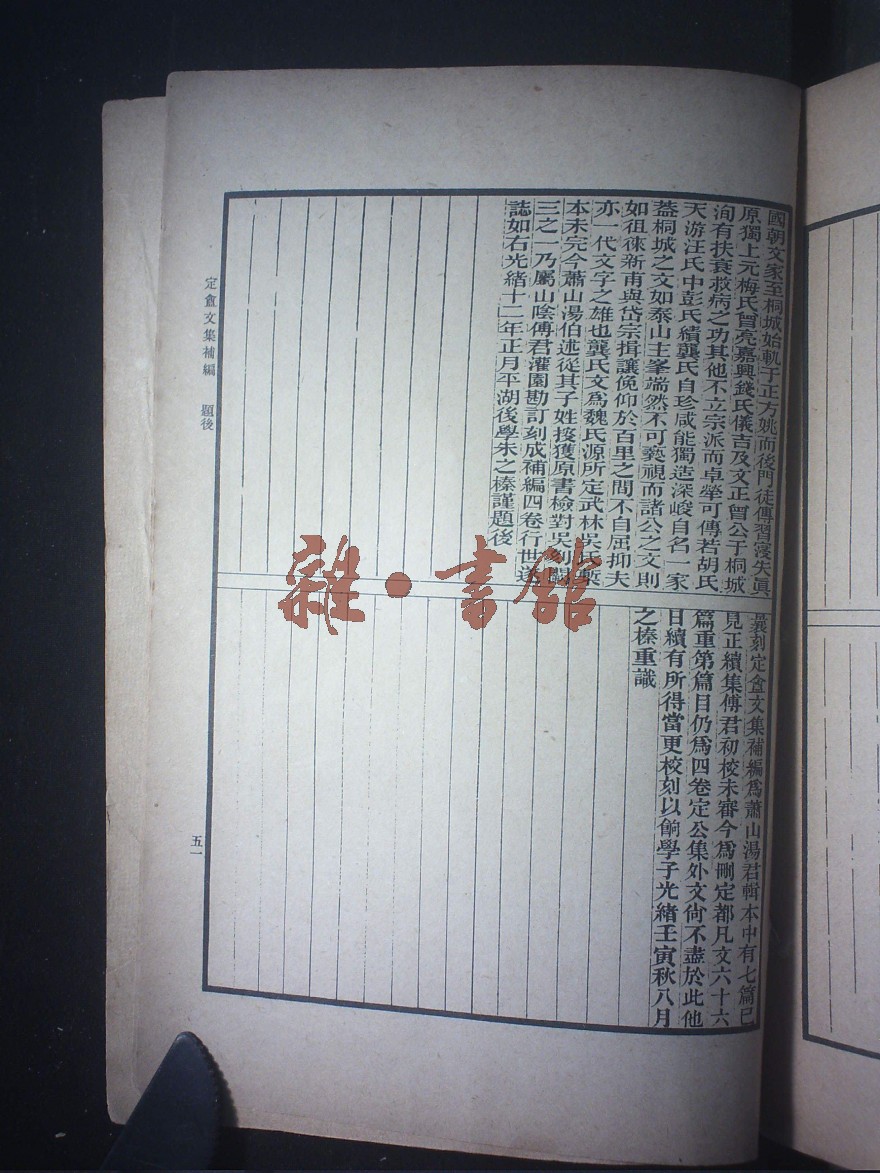 國朝文家至桐城始軌于正方姚而後門徒傳習寖失眞
原獨上元梅氏曾亮嘉興錢氏儀吉及文正曾公于桐城
洵有扶衰救病之功其他不立宗派而卓犖可傳若胡氏
天游汪氏中彭氏績龔氏自珍咸能獨造深峻自名一家
葢桐城之文如泰山主峯端然不可褻視而諸公之文則
如徂徠新甫與岱宗揖讓俛仰於百里之間不自屈抑夫
亦一代文字之雄也龔氏文爲魏氏源所定武林吳氏槧
本未完今蕭山湯伯述從其子姓接獲原書檢對吳刻闕
三之一乃屬山陰傅君灌園勘訂刻成補編四卷行世遂
誌如右光緖十二年正月平湖後學朱之榛謹題後
曩刻定盦文集補編爲蕭山湯君輯本中有七篇已
見正續集傅君初校未審今爲刪定都凡文六十六
篇重第篇目仍爲四卷定公集外文尙不盡於此他
日續有所得當更校刻以餉學子光緖壬寅秋八月
之榛重識
定盦文集補編 題後
五一
雜·書館